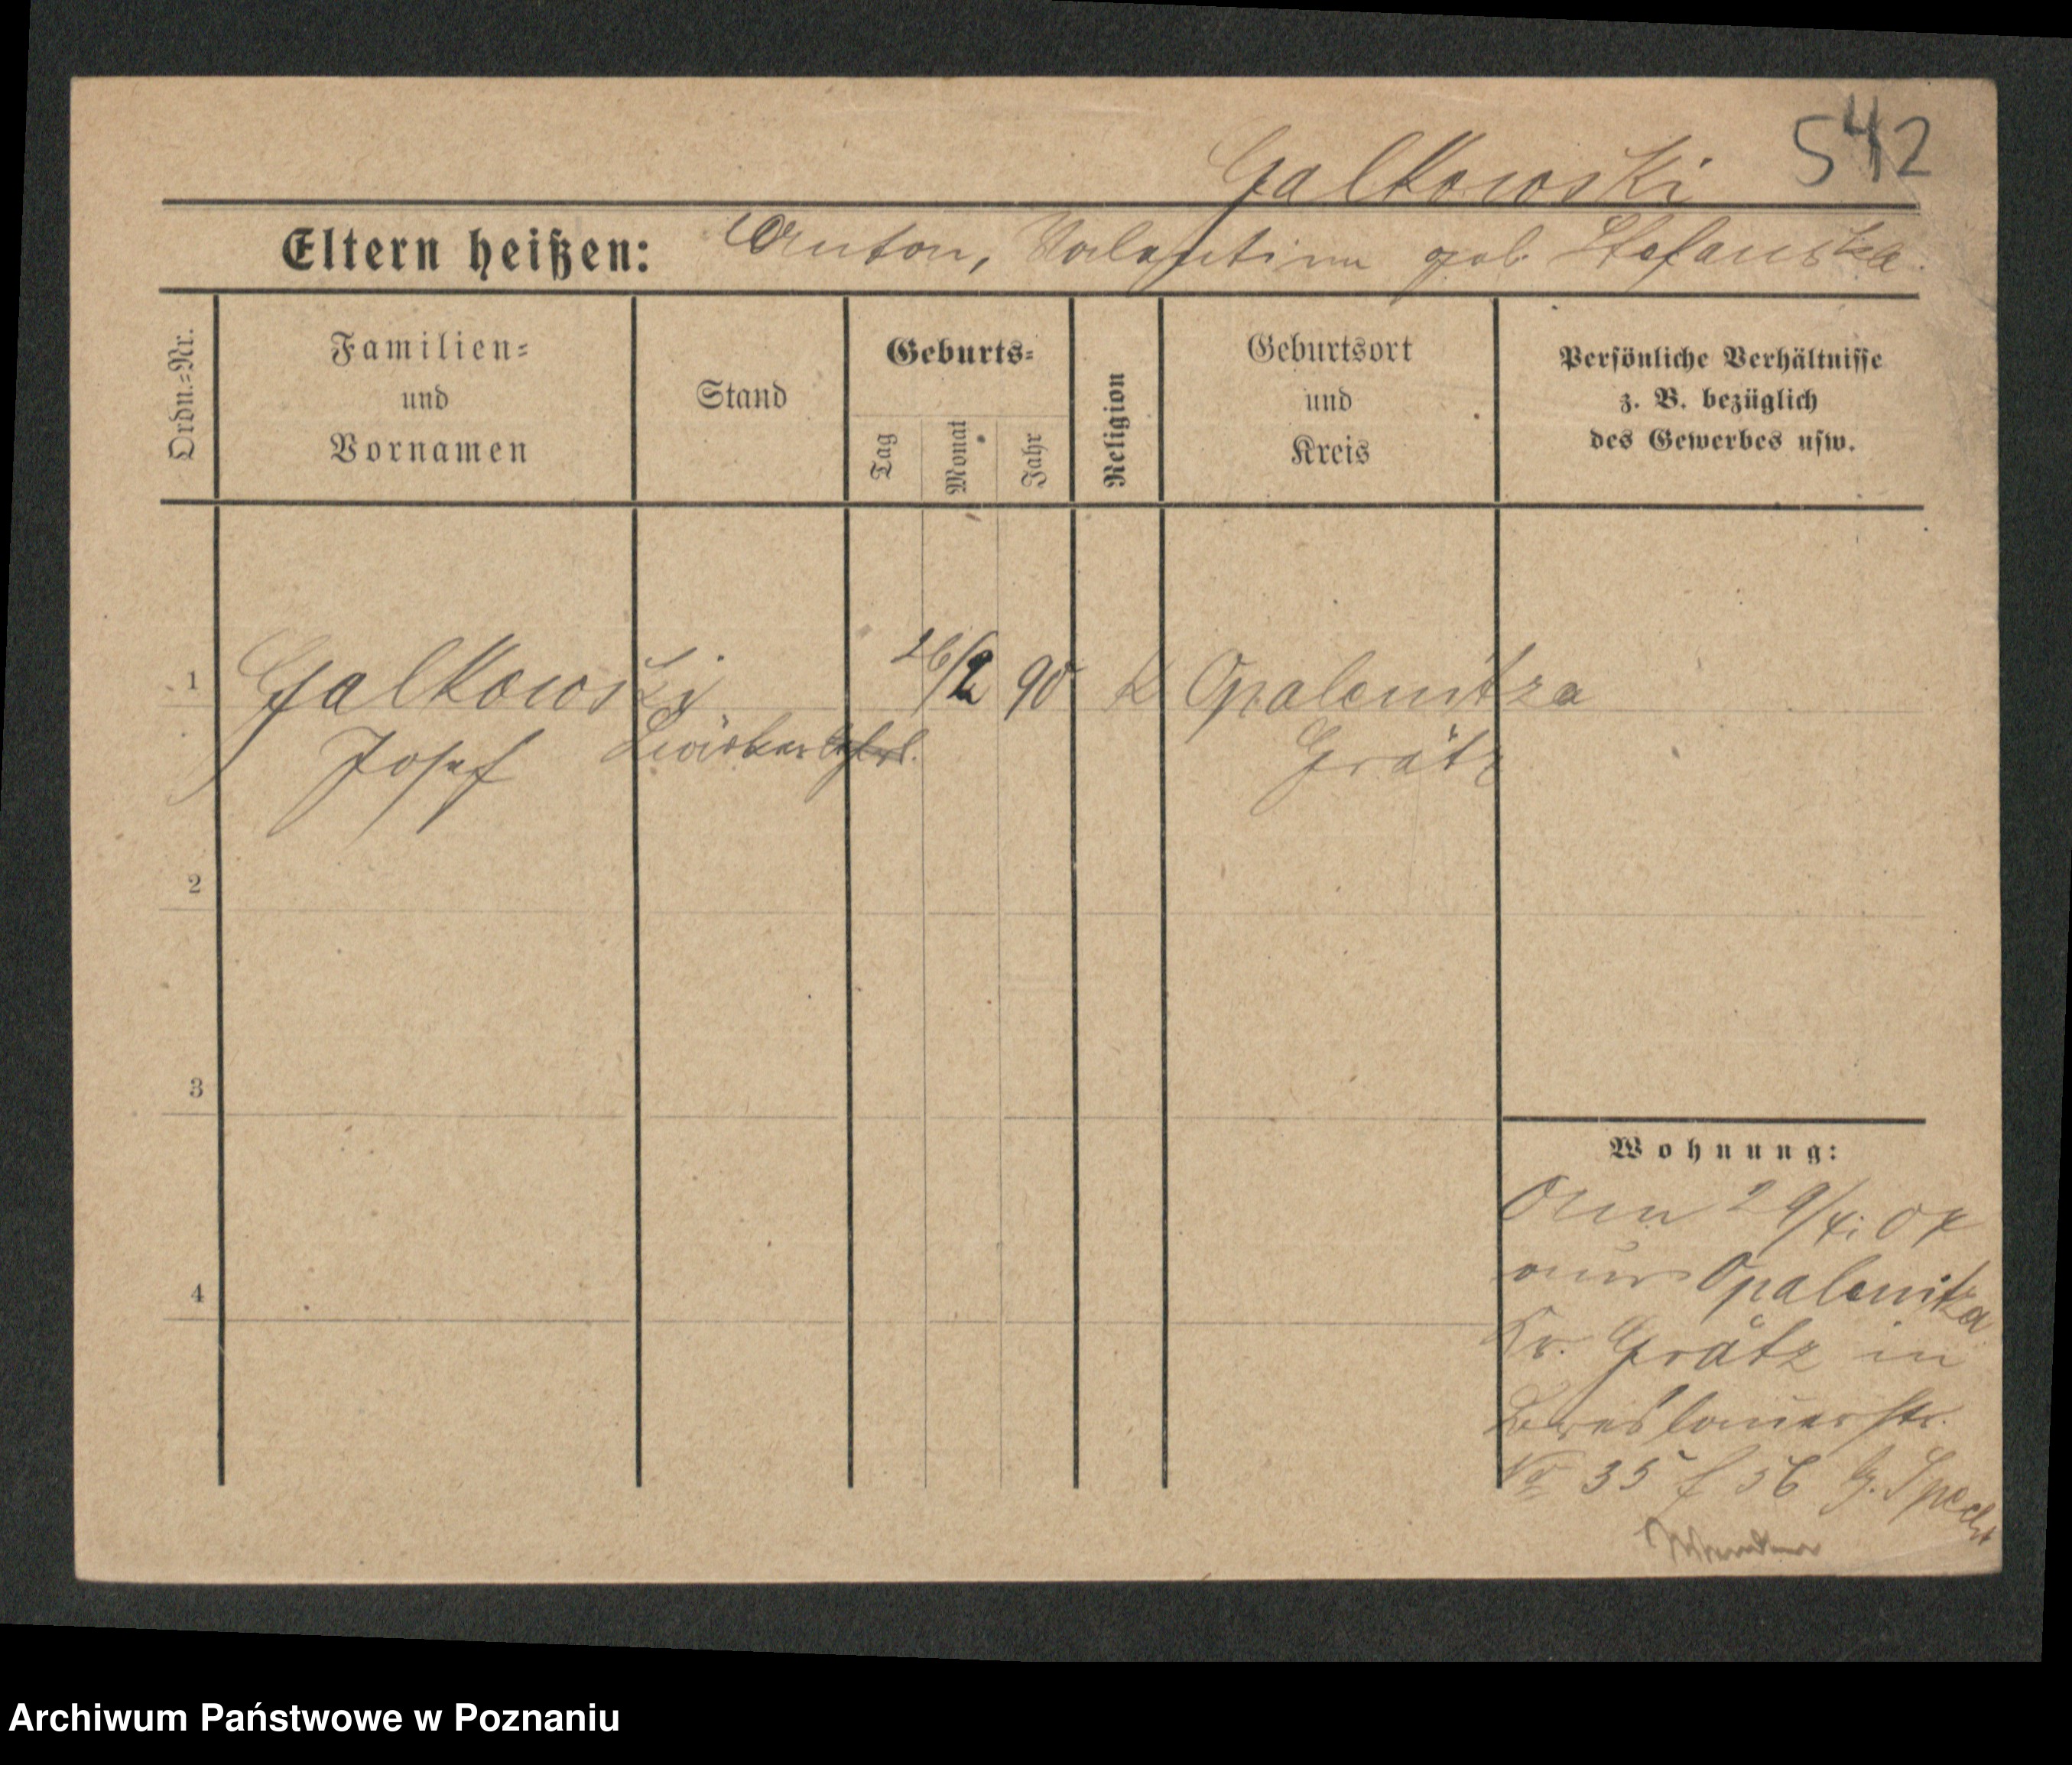 542
Galkowski
Eltern heißen: Anton, Valentina geb. Stefanska.
Ordn.=Nr.
Familien=
und
Vornamen
Stand
Geburts=
Tag
Monat
Jahr
Religion
Geburtsort
und
Kreis
Persönliche Verhältnisse
z. B. bezüglich
des Gewerbes usw.
1 Galkowski 26/2 90 k Opalenitza
Josef Grätz
2
3
4
Wohnung:
Am 29/4. 07
aus Opalenitza
Kr. Grätz in
Breslauerstr.
No 35 f 36 b. Specht
Archiwum Państwowe w Poznaniu